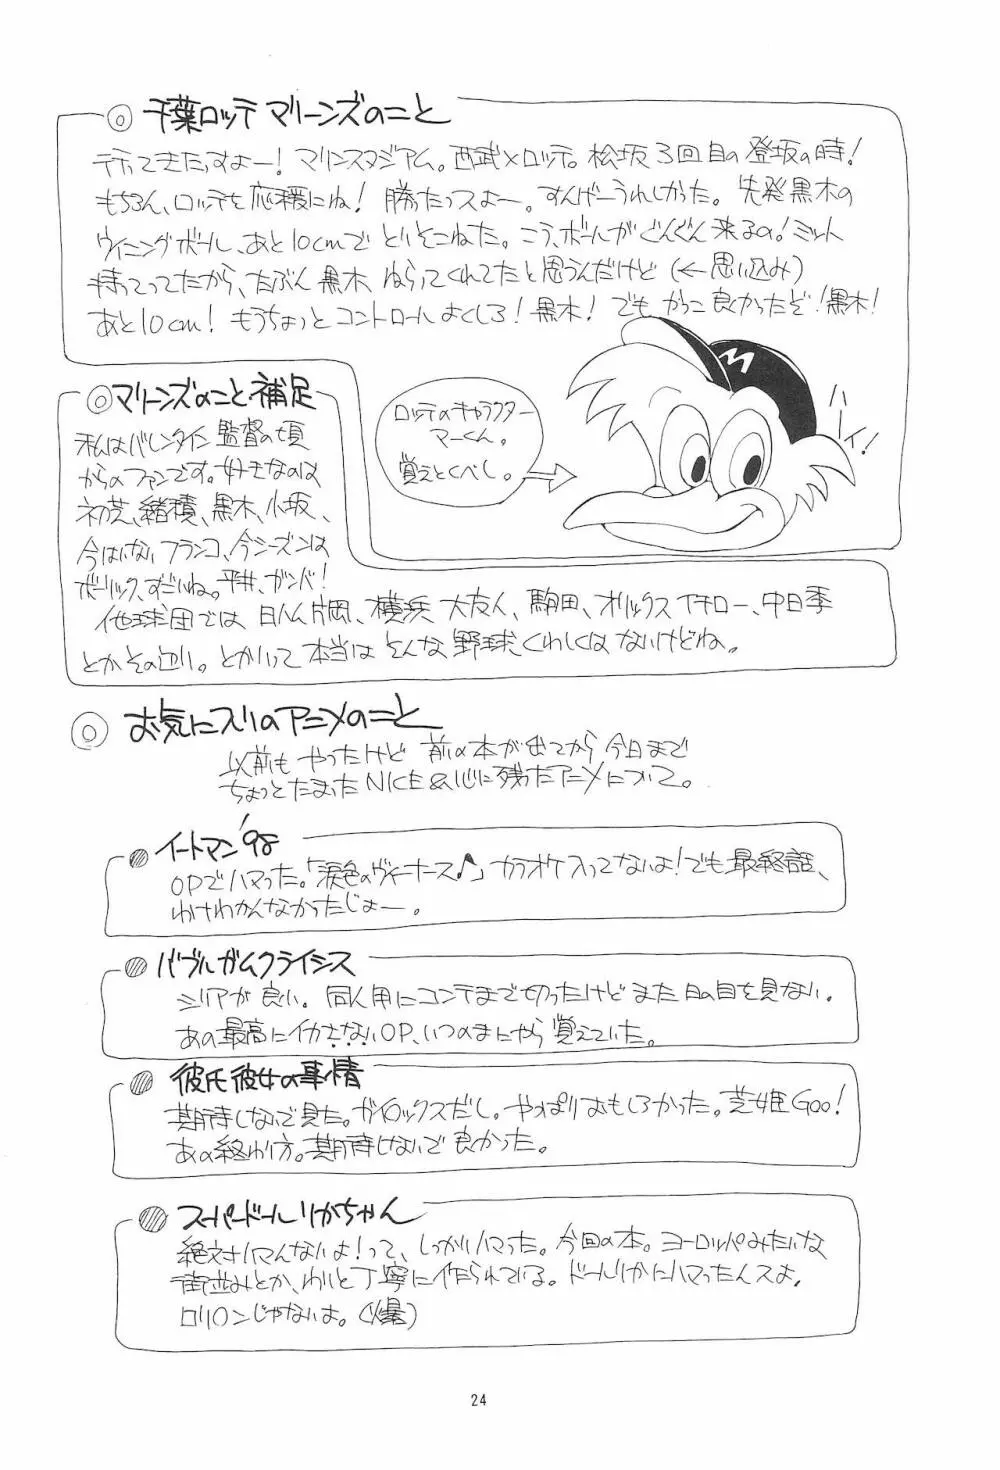 ◎ 千葉ロッテマリーンズのこと
行ってきたっすよー！マリンスタジアム。西武×ロッテ。松坂3回目の登坂の時！
もちろん、ロッテを応援にね！勝たっスよー。すんげーうれしかった。先発黒木の
ウイニングボール、あと10cmでとりそこねた。こう、ボールがぐんぐん来るの！ミット
持ってってたから、たぶん黒木ねらってくれてたと思うんだけど（←思い込み）
あと10cm！もうちょっとコントロールよくしろ！黒木！でもかっこ良かったぞ！黒木！
ロッテのキャラクター
マーくん。
覚えとくべし。
M
ハーイ！
◎マリーンズのこと補足
私はバレンタイン監督の頃
からのファンです。好きなのは
初芝、緒積、黒木、小坂、
今はいないフランコ、今シーズンは
ボーリック、すごいね。平井、ガンバ！
他球団では日ハム片岡、横浜大友人、駒田、オリックスイチロー、中日李
とかその辺り。とかいって本当はそんな野球くわしくはないけどね。
◎ お気に入りのアニメのこと
以前もやったけど前の本が出てから今日まで
ちょっとたまったNICE&心に残ったアニメについて。
●イートマン'98
OPでハマった。「涙色のヴィーナス♪」カラオケ入ってないよ！でも最終話、
わけわかんなかったじょー。
●バブルガムクライシス
シリアが良い。同人用にコンテまで切ったけどまだ日の目を見ない。
あの最高にイカさないOP、いつのまにやら覚えていた。
●彼氏彼女の事情
期待しないで見た。ガイロックスだし。やっぱりおもしろかった。芝姫Goo！
あの終わり方。期待しないで良かった。
●スーパードールリカちゃん
絶対ハマんないよ！って、しっかりハマった。今回の本。ヨーロッパみたいな
街並みとか、わりと丁寧に作られている。ドールリカにハマったんスよ。
ロリ○ンじゃないよ。（爆）
24